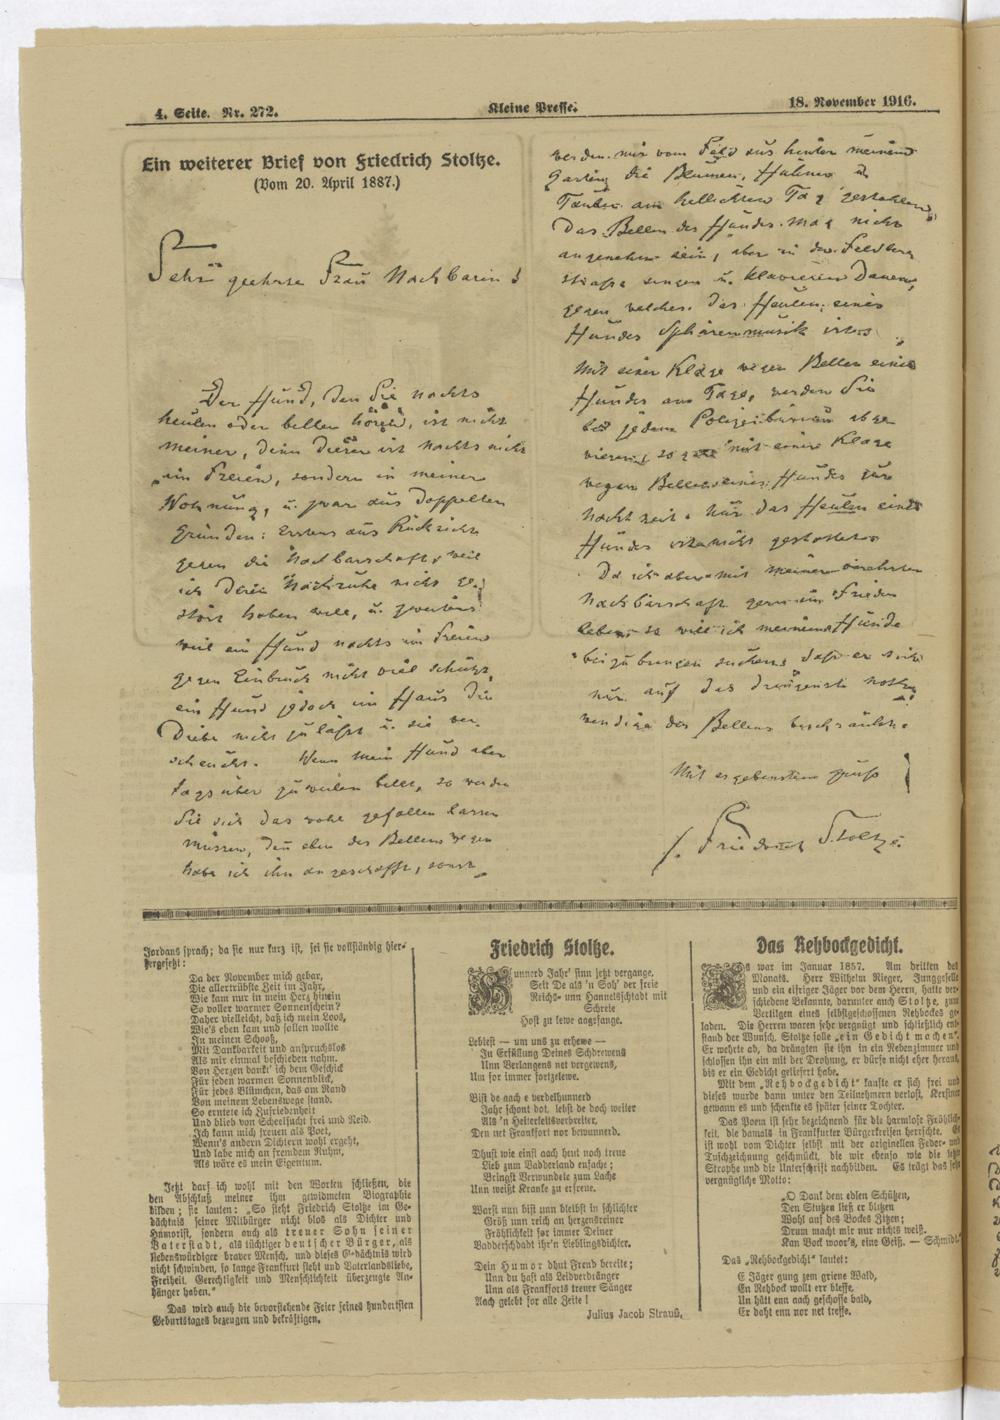 4. Seite. Nr. 272.
Kleine Presse.
18. November 1916.
Ein weiterer Brief von Friedrich Stoltze.
(Vom 20. April 1887.)
Sehr geehrte Frau Nachbarin!
Der Hund, den Sie nachts
heulen oder bellen hören, ist nicht
meiner, denn dieser ist nachts nicht
im Freien, sondern in meiner
Wohnung, u. zwar aus doppelten
Gründen: Erstens aus Rücksicht
gegen die Nachbarschaft, weil
ich deren Nachtruhe nicht ge-
stört haben will, u. zweitens
weil ein Hund nachts im Freien
gegen Einbruch nicht viel schützt,
ein Hund jedoch im Haus die
Diebe nicht zuläßt u. sie ver-
scheucht. Wenn mein Hund aber
tags über zuweilen bellt, so werden
Sie sich das wohl gefallen lassen
müssen, denn eben des Bellens wegen
habe ich ihn angeschafft, sonst
werden mir vom Feld aus hinter meinem
Garten die Blumen, Hühner u.
Tauben am hellichten Tag gestohlen.
Das Bellen des Hundes mag nicht
angenehm sein, aber in der Feldberg
straße singen u. klavieren Damen,
gegen welches das Heulen eines
Hundes Sphärenmusik ist.
Mit einer Klage wegen Bellen eines
Hundes am Tage, werden Sie
bei jedem Polizeibüreau abge
wiesen, so gar mit einer Klage
wegen Bellens eines Hundes zur
Nachtzeit. Nur das Heulen eines
Hundes ist nicht gestattet.
Da ich aber mit meiner verehrten
Nachbarschaft gern im Frieden
lebe, so will ich meinem Hunde
beizubringen suchen, daß er sich
nur auf das dringenst noth-
wendige des Bellens beschränke.
Mit ergebenstem Gruß
Friedrich Stoltze.
Jordans sprach; da sie nur kurz ist, sei sie vollständig hier-
hergesetzt:
Da der November mich gebar,
Die allertrübste Zeit im Jahr,
Wie kam nur in mein Herz hinein
So voller warmer Sonnenschein?
Daher vielleicht, daß ich mein Loos,
Wie's eben kam und fallen wollte
In meinen Schooß,
Mit Dankbarkeit und anspruchslos
Als mir einmal beschieden nahm.
Von Herzen dankt' ich dem Geschick
Für jeden warmen Sonnenblick,
Für jedes Blümchen, das am Rand
Von meinem Lebenswege stand.
So erntete ich Zufriedenheit
Und blieb von Scheelsucht frei und Neid.
Ich kann mich freuen als Poet,
Wenn's andern Dichtern wohl ergeht,
Und labe mich an fremdem Ruhm,
Als wäre es mein Eigentum.
Jetzt darf ich wohl mit den Worten schließen, die
den Abschluß meiner ihm gewidmeten Biographie
bilden; sie lauten: „So steht Friedrich Stoltze im Ge-
dächtnis seiner Mitbürger nicht blos als Dichter und
Humorist, sondern auch als treuer Sohn seiner
Vaterstadt, als tüchtiger deutscher Bürger, als
liebenswürdiger braver Mensch, und dieses Gedächtnis wird
nicht schwinden, so lange Frankfurt steht und Vaterlandsliebe,
Freiheit, Gerechtigkeit und Menschlichkeit überzeugte An-
hänger haben."
Das wird auch die bevorstehende Feier seines hundertsten
Geburtstages bezeugen und bekräftigen.
Friedrich Stoltze.
Hunnerd Jahr' sinn jetzt vergange.
Seit De als 'n Soh' der freie
Reichs- unn Hannelsschtadt mit
Schreie
Host zu lewe aagefange.
Lebtest — um uns zu erhewe —
In Erfüllung Deines Schdrewens
Unn Verlangens net vergewens,
Um for immer fortzelewe.
Bist de aach e verdelhunnerd
Jahr schont dot, lebst de doch weiter
Als 'n Heiterkeitsverbreiter,
Den net Frankfort nor bewunnerd.
Dhust wie einst aach heut noch treue
Lieb zum Vadderland entfache;
Bringst Verwundete zum Lache
Unn weißt Kranke zu erfreue.
Warst nun bist unn bleibst in schlichter
Größ unn reich an herzensreiner
Fröhlichkeit for immer Deiner
Vadderschdadt ihr'n Lieblingsdichter.
Dein Humor dhut Freud bereite;
Unn du hast als Leidverdränger
Unn als Frankforts treuer Sänger
Aach gelebt for alle Zeite!
Julius Jacob Strauß.
Das Rehbockgedicht.
Es war im Januar 1857. Am dritten des
Monats. Herr Wilhelm Rieger, Junggeselle
und ein eifriger Jäger vor dem Herrn, hatte ver-
schiedene Bekannte, darunter auch Stoltze, zum
Vertilgen eines selbstgeschossenen Rehbockes ge-
laden. Die Herren waren sehr vergnügt und schließlich ent-
stand der Wunsch, Stoltze solle „ein Gedicht machen".
Er wehrte ab, da drängten sie ihn in ein Nebenzimmer und
schlossen ihn ein mit der Drohung, er dürfe nicht eher heraus,
bis er ein Gedicht geliefert habe.
Mit dem „Rehbockgedicht" kaufte er sich frei und
dieses wurde dann unter den Teilnehmern verlost,
gewann es und schenkte es später seiner Tochter.
Das Poem ist sehr bezeichnend für die harmlose Fröhlich-
keit, die damals in Frankfurter Bürgerkreisen herrschte. Es
ist wohl vom Dichter selbst mit der originellen Feder- und
Tuschzeichnung geschmückt, die wir ebenso wie die letzte
Strophe und die Unterschrift nachbilden. Es trägt das sehr
vergnügliche Motto:
„O Dank dem edlen Schützen,
Den Stutzen ließ er blitzen
Wohl auf des Bockes Zitzen;
Drum macht mir nur nichts weiß,
Kan Bock woar's, eine Geiß. — Schmidt."
Das „Rehbockgedicht" lautet:
E Jäger gung zem griene Wald,
En Rehbock wollt err bleffe.
Un hätt enn aach geschosse bald,
Er daht enn nor net treffe.